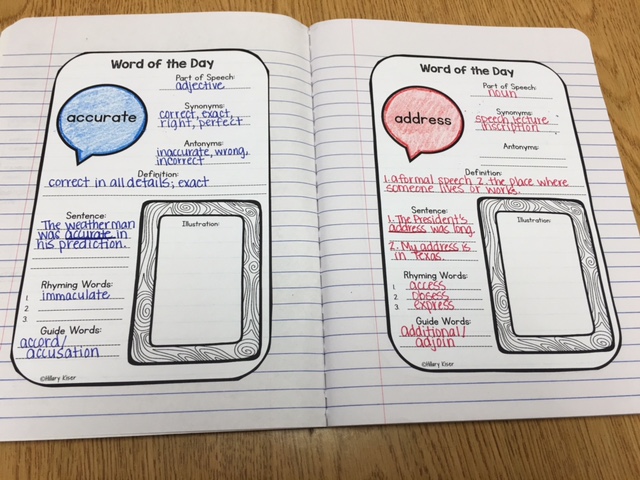 Word of the Day
Part of Speech:
adjective
accurate
Synonyms:
correct, exact,
right, perfect
Antonyms:
inaccurate, wrong,
incorrect
Definition:
correct in all details; exact
Sentence:
The weatherman
was accurate in
his prediction.
Illustration:
Rhyming Words:
1. immaculate
2.
3.
Guide Words:
accord/
accusation
©Hillary Kiser
Word of the Day
Part of Speech:
noun
address
Synonyms:
speech, lecture
inscription
Antonyms:
Definition:
1. a formal speech 2. the place where
someone lives or works.
Sentence:
1. The President's
address was long.
2. My address is
in Texas.
Illustration:
Rhyming Words:
1. access
2. obsess
3. express
Guide Words:
additional/
adjoin
©Hillary Kiser